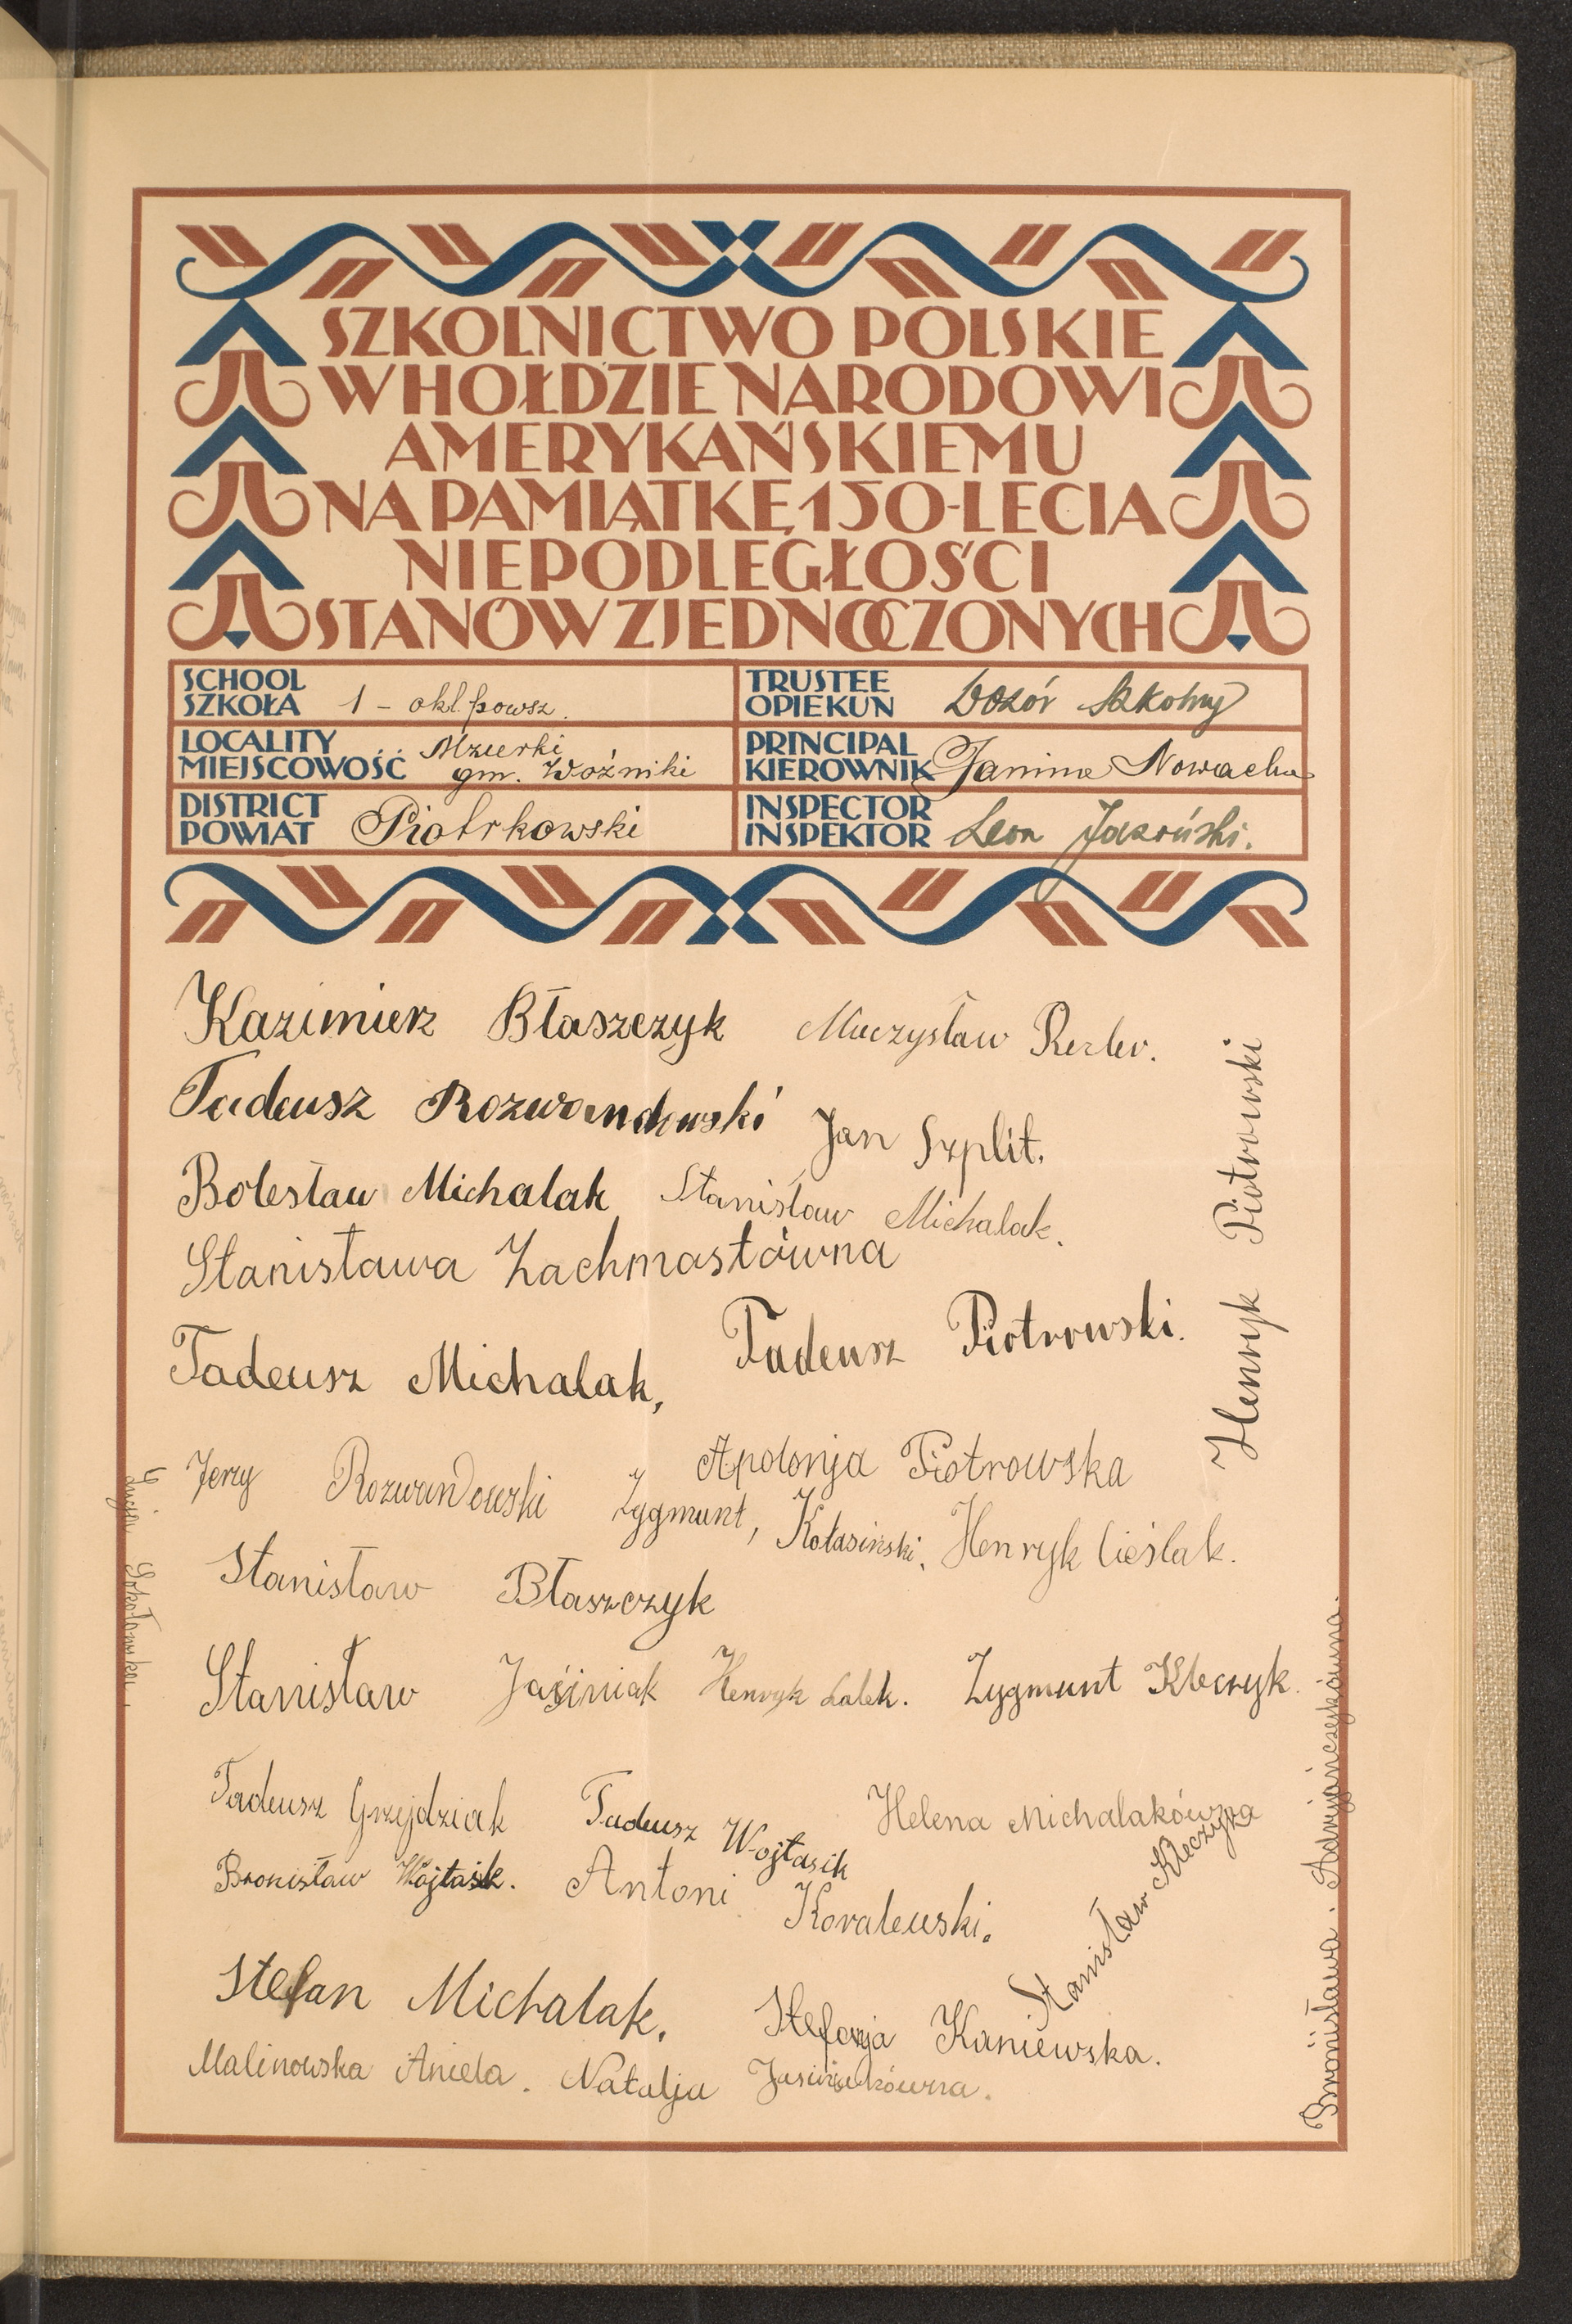 SZKOLNICTWO POLSKIE
W HOŁDZIE NARODOWI
AMERYKAŃSKIEMU
NA PAMIĄTKĘ 150-LECIA
NIEPODLEGŁOŚCI
STANÓW ZJEDNOCZONYCH
SCHOOL
SZKOŁA 1 - okl. powsz.
TRUSTEE
OPIEKUN Dozór Szkolny
LOCALITY
MIEJSCOWOŚĆ Mzurki
gm. Woźniki
PRINCIPAL
KIEROWNIK Janina Nowacka
DISTRICT
POWIAT Piotrkowski
INSPECTOR
INSPEKTOR Leon
Kazimierz Błaszczyk Mieczysław
Tadeusz Rozwandowski Jan Szplit.
Bolesław Michalak Stanisław Michalak.
Stanisława Zachmastówna
Tadeusz Michalak, Tadeusz Piotrowski.
Henryk Piotrowski
Apolonja Piotrowska
Jerzy Rozwandowski Zygmunt, Kołasiński, Henryk Cieślak.
Stanisław Błaszczyk
Stanisław Jaśiniak Henryk Lalek. Zygmunt Kleczyk.
Sokołowska
Tadeusz Grzejdziak Tadeusz Wojtasik Helena Michalakówna
Bronisław Wojtasik. Antoni Kovalewski.
Stanisław Kleczyk
Stefan Michalak. Stefanja Kaniewska.
Malinowska Aniela. Natalja Jasiniakówna.
Bronisława. Adryjańczykówna.